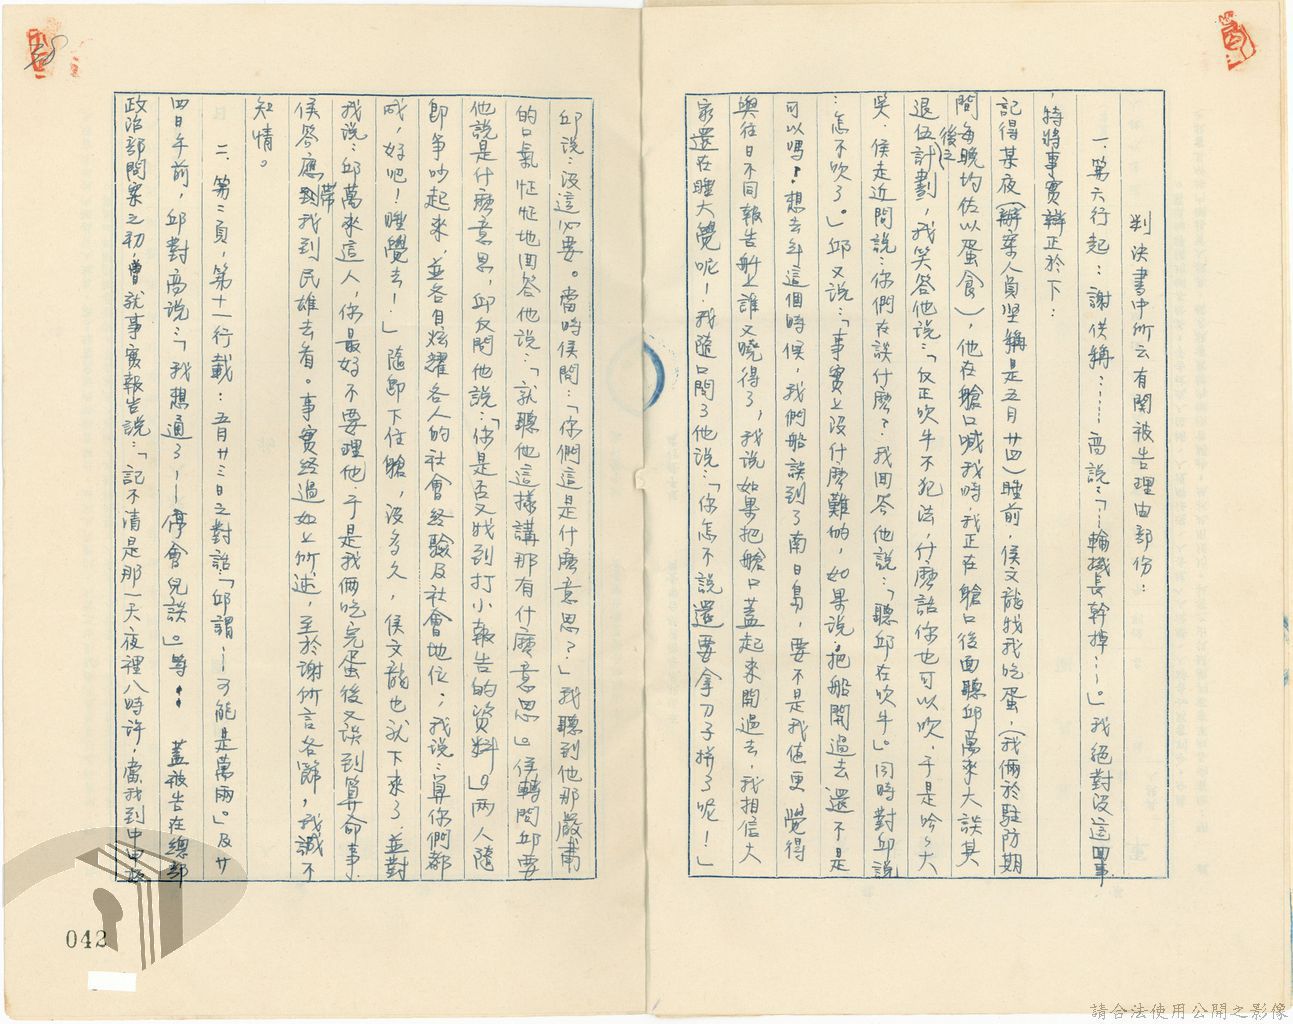 判決書中所云有關被告理由部份：
一、第六行起：謝供稱：……高說：「…輪機長幹掉……」。我絕對沒這回事
，特將事實辯正於下：
記得某夜（辦案人員坚稱是五月廿四）睡前，侯文龍找我吃蛋，（我倆於駐防期
間每晚均佐以蛋食），他在艙口喊我時，我正在艙口後面聽邱萬來大談其
退伍後之計劃，我笑答他說：「反正吹牛不犯法，什麼話你也可以吹，于是吟吟大
笑，侯走近問說：你們在談什麼？我回答他說：「聽邱在吹牛」。同時對邱說
：怎不吹了。」邱又說：「事實上沒什麼難的，如果說，把船開過去還不是
可以嗎？想去年這個時候，我們船談到了南日島，要不是我值更，覺得
與往日不同報告舰上誰又曉得了，我說如果把艙口蓋起來開過去，我相信大
家還在睡大覺呢！我隨口問了他說：「你怎不說還要拿刀子拼了呢！」
邱說：沒這必要。當時侯問：「你們這是什麼意思？」我聽到他那嚴肅
的口氣怔怔地回答他說：「就聽他這樣講那有什麼意思」。侯轉問邱要
他說是什麼意思，邱反問他說：「你是否又找到打小報告的資料」。兩人隨
即爭吵起來，並各自炫耀各人的社會經驗及社會地位；我說：算你們都
成，好吧！睡覺去！」隨即下住艙，沒多久，侯文龍也就下來了，並對
我說：邱萬來這人，你最好不要理他，于是我倆吃完蛋後又談到算命事，
侯答應帶我到民雄去看。事實经過如上所述，至於謝所言各節，我誠不
知情。
二、第二頁，第十一行載：五月廿三日之對話「邱謂……可能是萬兩」。及廿
四日午前，邱對高說：「我想通了……停會兒談」。等： 蓋被告在總部
政治部問案之初，曾就事實報告說：「記不清是那一天夜裡八時許，當我到中甲板
38
042
請合法使用公開之影像